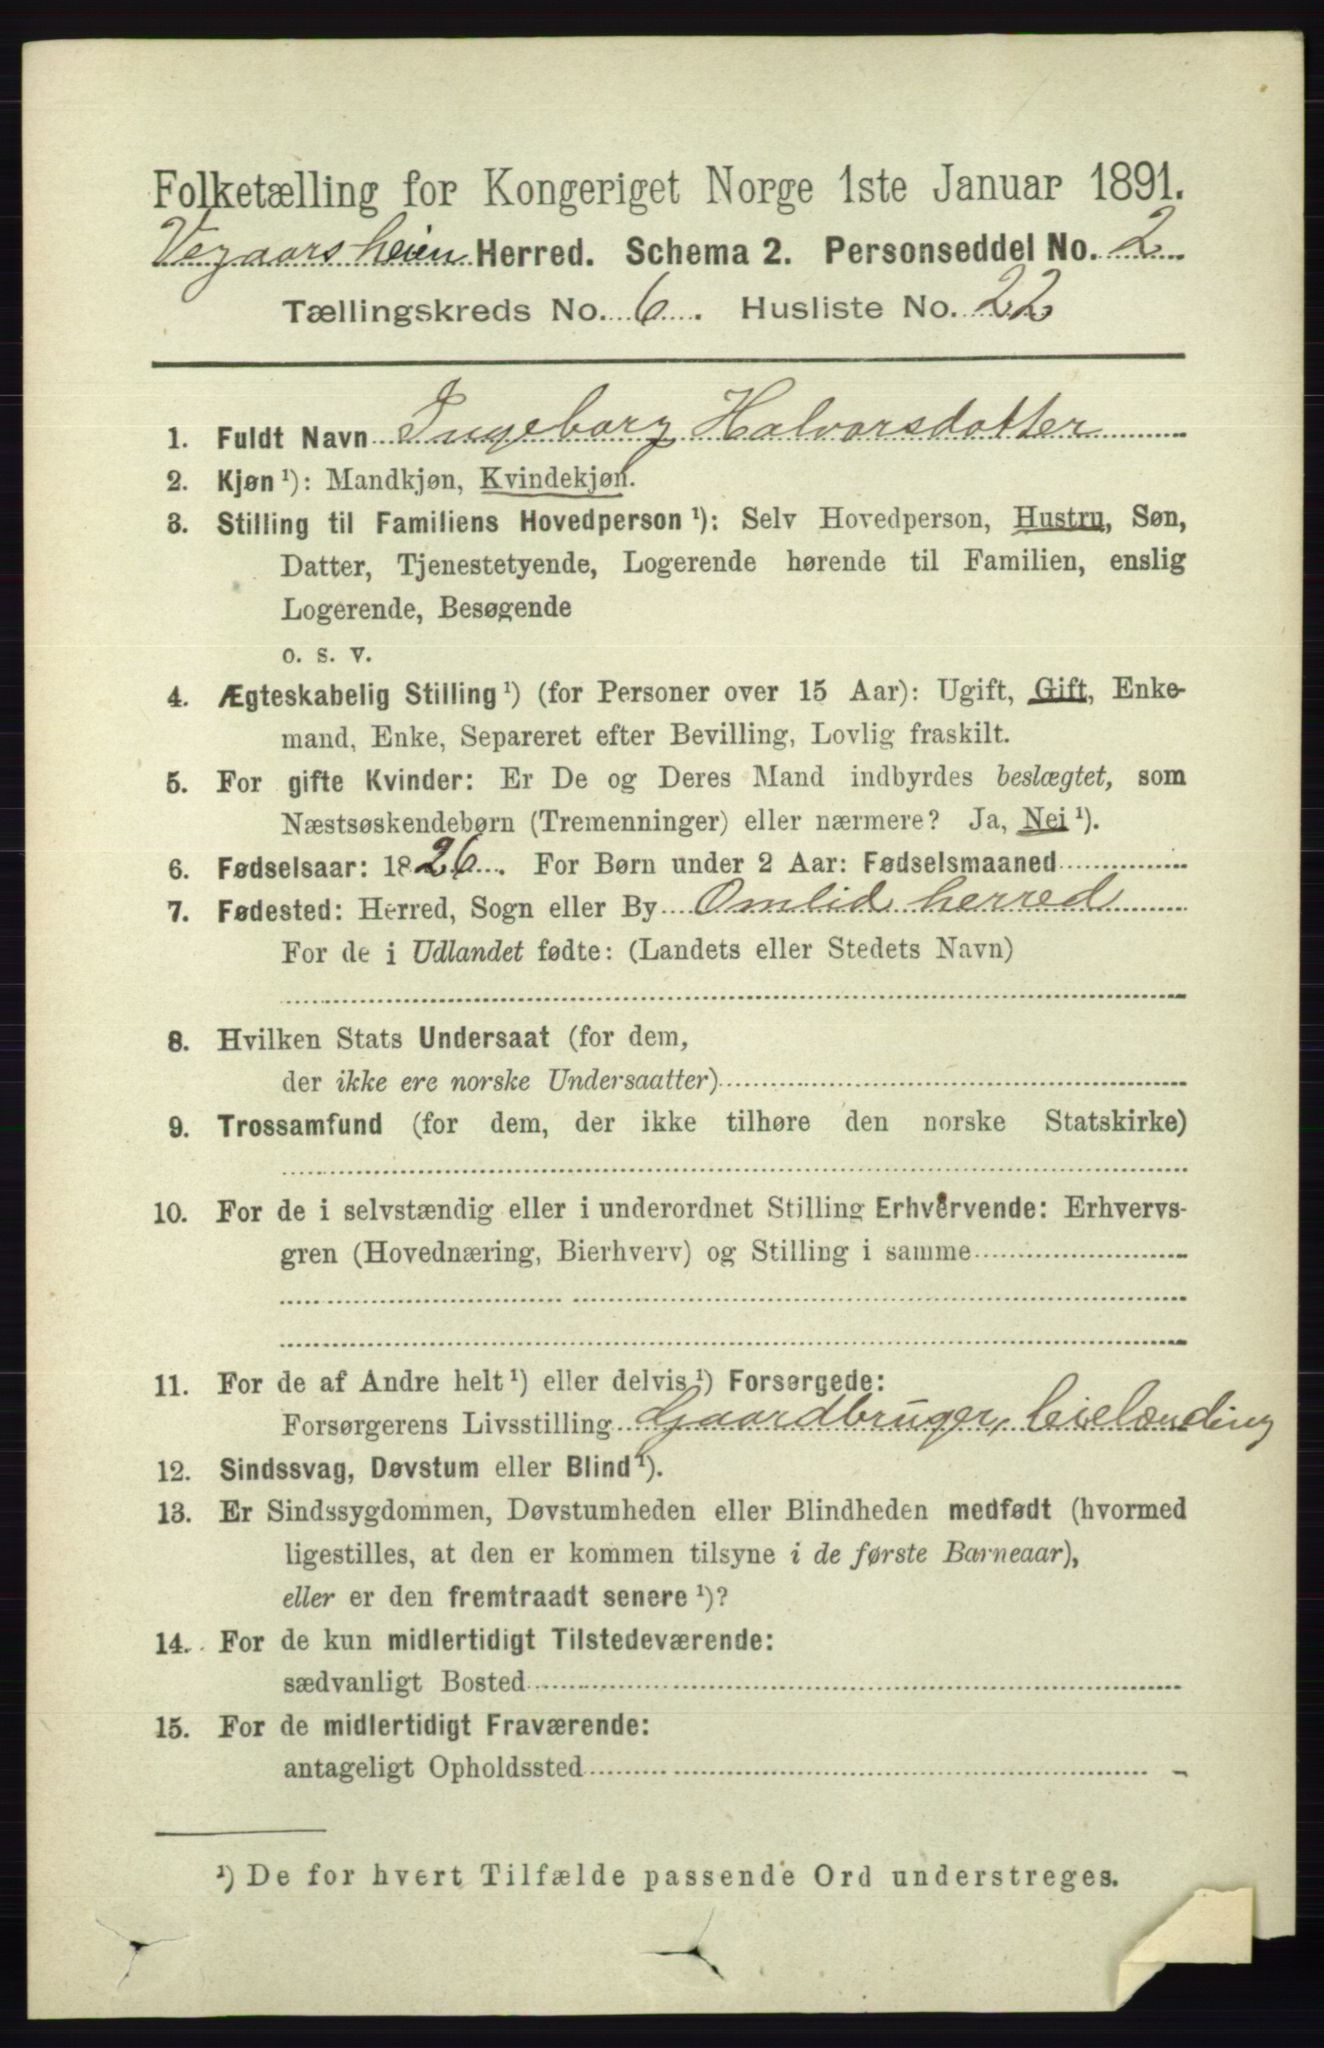 Folketælling for Kongeriget Norge 1ste Januar 1891.
Vegaarsheien Herred. Schema 2. Personseddel No. 2
Tællingskreds No. 6. Husliste No. 22
1. Fuldt Navn Ingeborg Halvorsdotter
2. Kjøn¹): Mandkjøn, Kvindekjøn.
3. Stilling til Familiens Hovedperson¹): Selv Hovedperson, Hustru, Søn,
Datter, Tjenestetyende, Logerende hørende til Familien, enslig
Logerende, Besøgende
o. s. v.
4. Ægteskabelig Stilling¹) (for Personer over 15 Aar): Ugift, Gift, Enke-
mand, Enke, Separeret efter Bevilling, Lovlig fraskilt.
5. For gifte Kvinder: Er De og Deres Mand indbyrdes beslægtet, som
Næstsøskendebørn (Tremenninger) eller nærmere? Ja, Nei¹).
6. Fødselsaar: 1826. For Børn under 2 Aar: Fødselsmaaned
7. Fødested: Herred, Sogn eller By Omlid herred
For de i Udlandet fødte: (Landets eller Stedets Navn)
8. Hvilken Stats Undersaat (for dem,
der ikke ere norske Undersaatter)
9. Trossamfund (for dem, der ikke tilhøre den norske Statskirke)
10. For de i selvstændig eller i underordnet Stilling Erhvervende: Erhvervs-
gren (Hovednæring, Bierhverv) og Stilling i samme
11. For de af Andre helt¹) eller delvis¹) Forsørgede:
Forsørgerens Livsstilling Gaardbruger, leilænding
12. Sindssvag, Døvstum eller Blind¹).
13. Er Sindssygdommen, Døvstumheden eller Blindheden medfødt (hvormed
ligestilles, at den er kommen tilsyne i de første Barneaar),
eller er den fremtraadt senere¹)?
14. For de kun midlertidigt Tilstedeværende:
sædvanligt Bosted
15. For de midlertidigt Fraværende:
antageligt Opholdssted
¹) De for hvert Tilfælde passende Ord understreges.